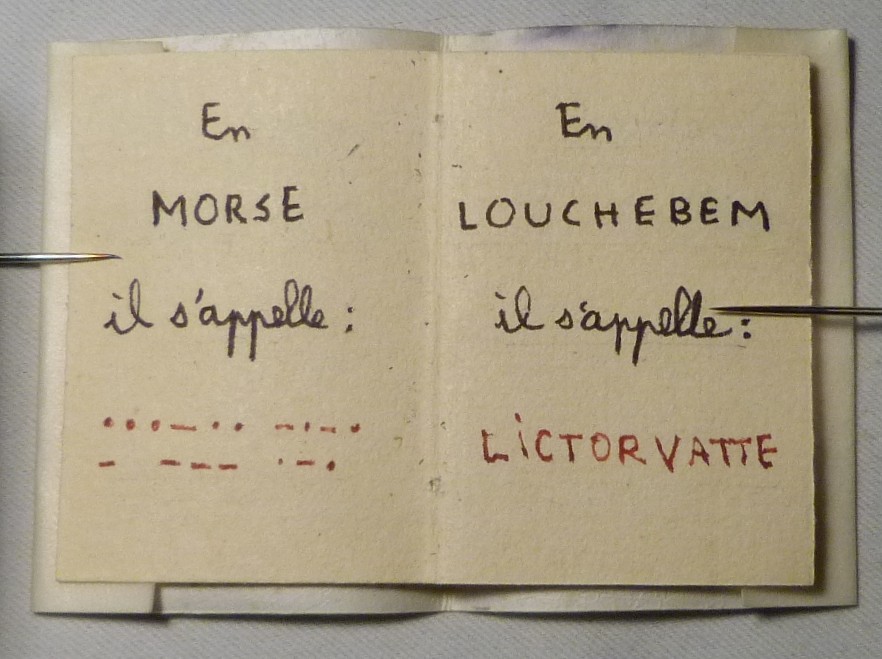 En
MORSE
il s'appelle :
...-.. -.-.
- --- .-.
En
LOUCHEBEM
il s'appelle :
LiCTORVATTE